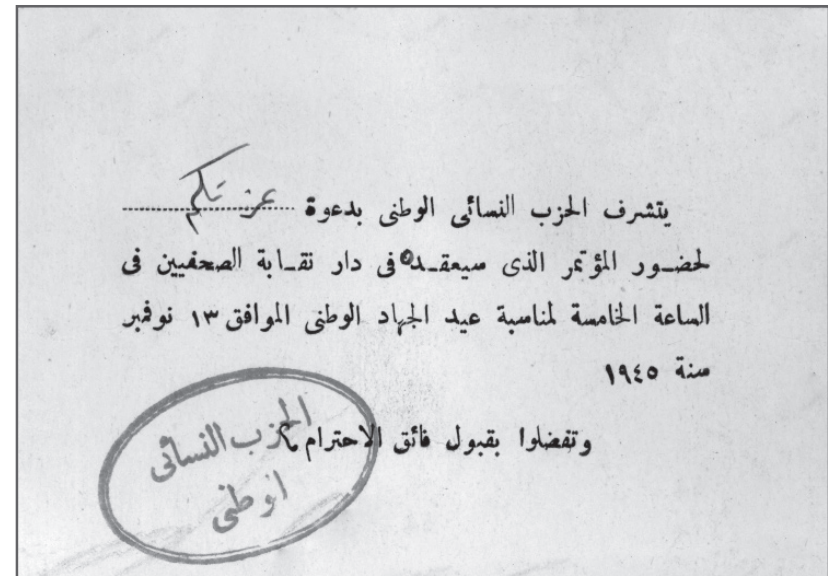 يتشرف الحزب النسائى الوطنى بدعوة عزتكم
لحضور المؤتمر الذى سيعقده فى دار نقابة الصحفيين فى
الساعة الخامسة لمناسبة عيد الجهاد الوطنى الموافق ١٣ نوفمبر
سنة ١٩٤٥
وتفضلوا بقبول فائق الاحترام
الحزب النسائى
الوطنى